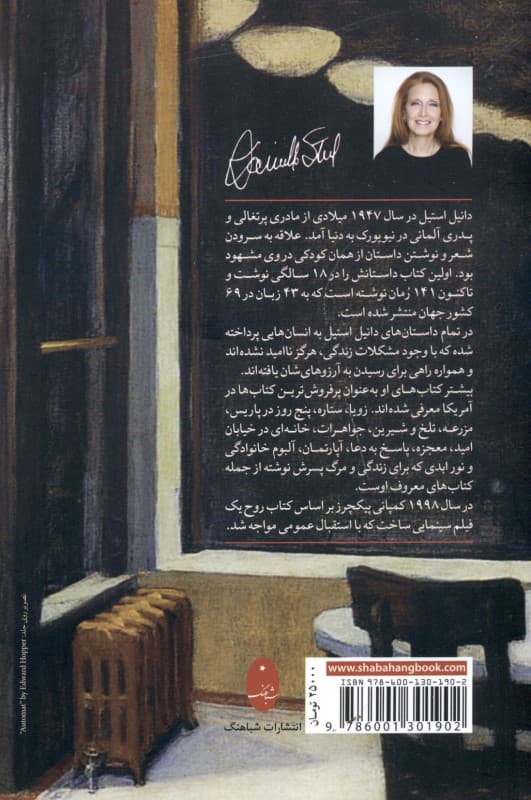 Danielle Steel
دانیل استیل در سال ۱۹۴۷ میلادی از مادری پرتغالی و
پدری آلمانی در نیویورک به دنیا آمد. علاقه به سرودن
شعر و نوشتن داستان از همان کودکی در وی مشهود
بود. اولین کتاب داستانش را در ۱۸ سالگی نوشت و
تاکنون ۱۴۱ رُمان نوشته است که به ۴۳ زبان در ۶۹
کشور جهان منتشر شده است.
در تمام داستان‌های دانیل استیل به انسان‌هایی پرداخته
شده که با وجود مشکلات زندگی، هرگز ناامید نشده‌اند
و همواره راهی برای رسیدن به آرزوهای‌شان یافته‌اند.
بیشتر کتاب‌های او به‌عنوان پرفروش‌ترین کتاب‌ها در
آمریکا معرفی شده‌اند. زویا، ستاره، پنج روز در پاریس،
مزرعه، تلخ و شیرین، جواهرات، خانه‌ای در خیابان
امید، معجزه، پاسخ به دعا، آپارتمان، آلبوم خانوادگی
و نور ابدی که برای زندگی و مرگ پسرش نوشته از جمله
کتاب‌های معروف اوست.
در سال ۱۹۹۸ کمپانی پیکچرز بر اساس کتاب روح یک
فیلم سینمایی ساخت که با استقبال عمومی مواجه شد.
تصویر روی جلد: "Automat" by Edward Hopper
شباهنگ
انتشارات شباهنگ
۲۵۰۰۰ تومان
www.shabahangbook.com
ISBN 978-600-130-190-2
9 786001 301902